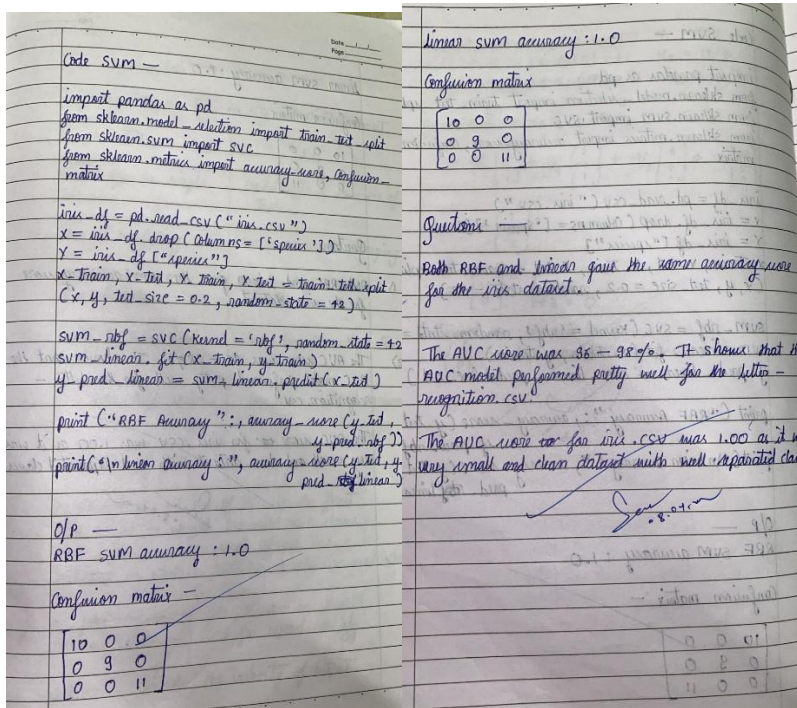 Date
Page
Code SVM —
import pandas as pd
from sklearn.model_selection import train_test_split
from sklearn.svm import SVC
from sklearn.metrics import accuracy_score, Confusion_
matrix
iris_df = pd.read_csv("iris.csv")
X = iris_df.drop(Columns=['species'])
Y = iris_df["species"]
X_train, X_test, Y_train, Y_test = train_test_split
(x, y, test_size = 0.2, random_state = 42)
svm_rbf = SVC(Kernel = 'rbf', random_state = 42
svm_linear.fit(x_train, y_train)
y_pred_linear = svm_linear.predict(x_test)
print("RBF Accuracy":, accuracy_score(y_test,
y_pred_rbf))
print("\n linear accuracy:", accuracy_score(y_test, y_
pred_linear)
O/P —
RBF SVM accuracy : 1.0
Confusion matrix —
10 0 0
0 9 0
0 0 11
linear SVM accuracy : 1.0
Confusion matrix
10 0 0
0 9 0
0 0 11
Questions —
Both RBF and linear gave the same accuracy score
for the iris dataset.
The AUC score was 96 – 98%. It shows that
AUC model performed pretty well for the letter –
recognition.csv.
The AUC score for iris.csv was 1.00 as it
very small and clean dataset with well separated